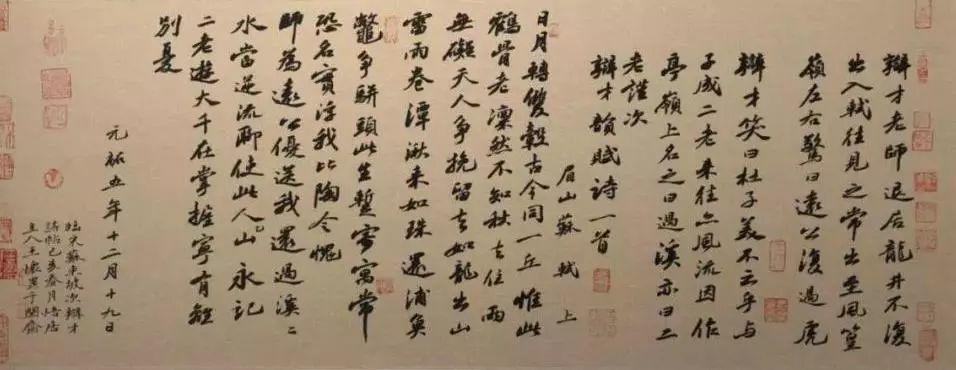 辯才老師退居龍井不復
出入軾往見之常出至風篁
嶺左右驚曰遠公復過虎
辯才笑曰杜子美不云乎與
子成二老来往亦風流因作
亭嶺上名之曰過溪亦曰二
老謹次
辯才韻賦詩一首
眉山蘇軾上
日月轉雙轂古今同一丘惟此
鶴骨老凜然不知秋去住兩
無礙天人争挽留去如龍出山
雷雨卷潭湫来如珠還浦魚
鼈争駢頭此生暫寄寓常
恐名實浮我比陶令愧
師為遠公優送我還過溪〻
水當逆流聊使此人山永記
二老遊大千在掌握寧有離
別憂
元祐五年十二月十九日
臨宋蘇東坡次辯才
詩帖己亥春月居
主人王于